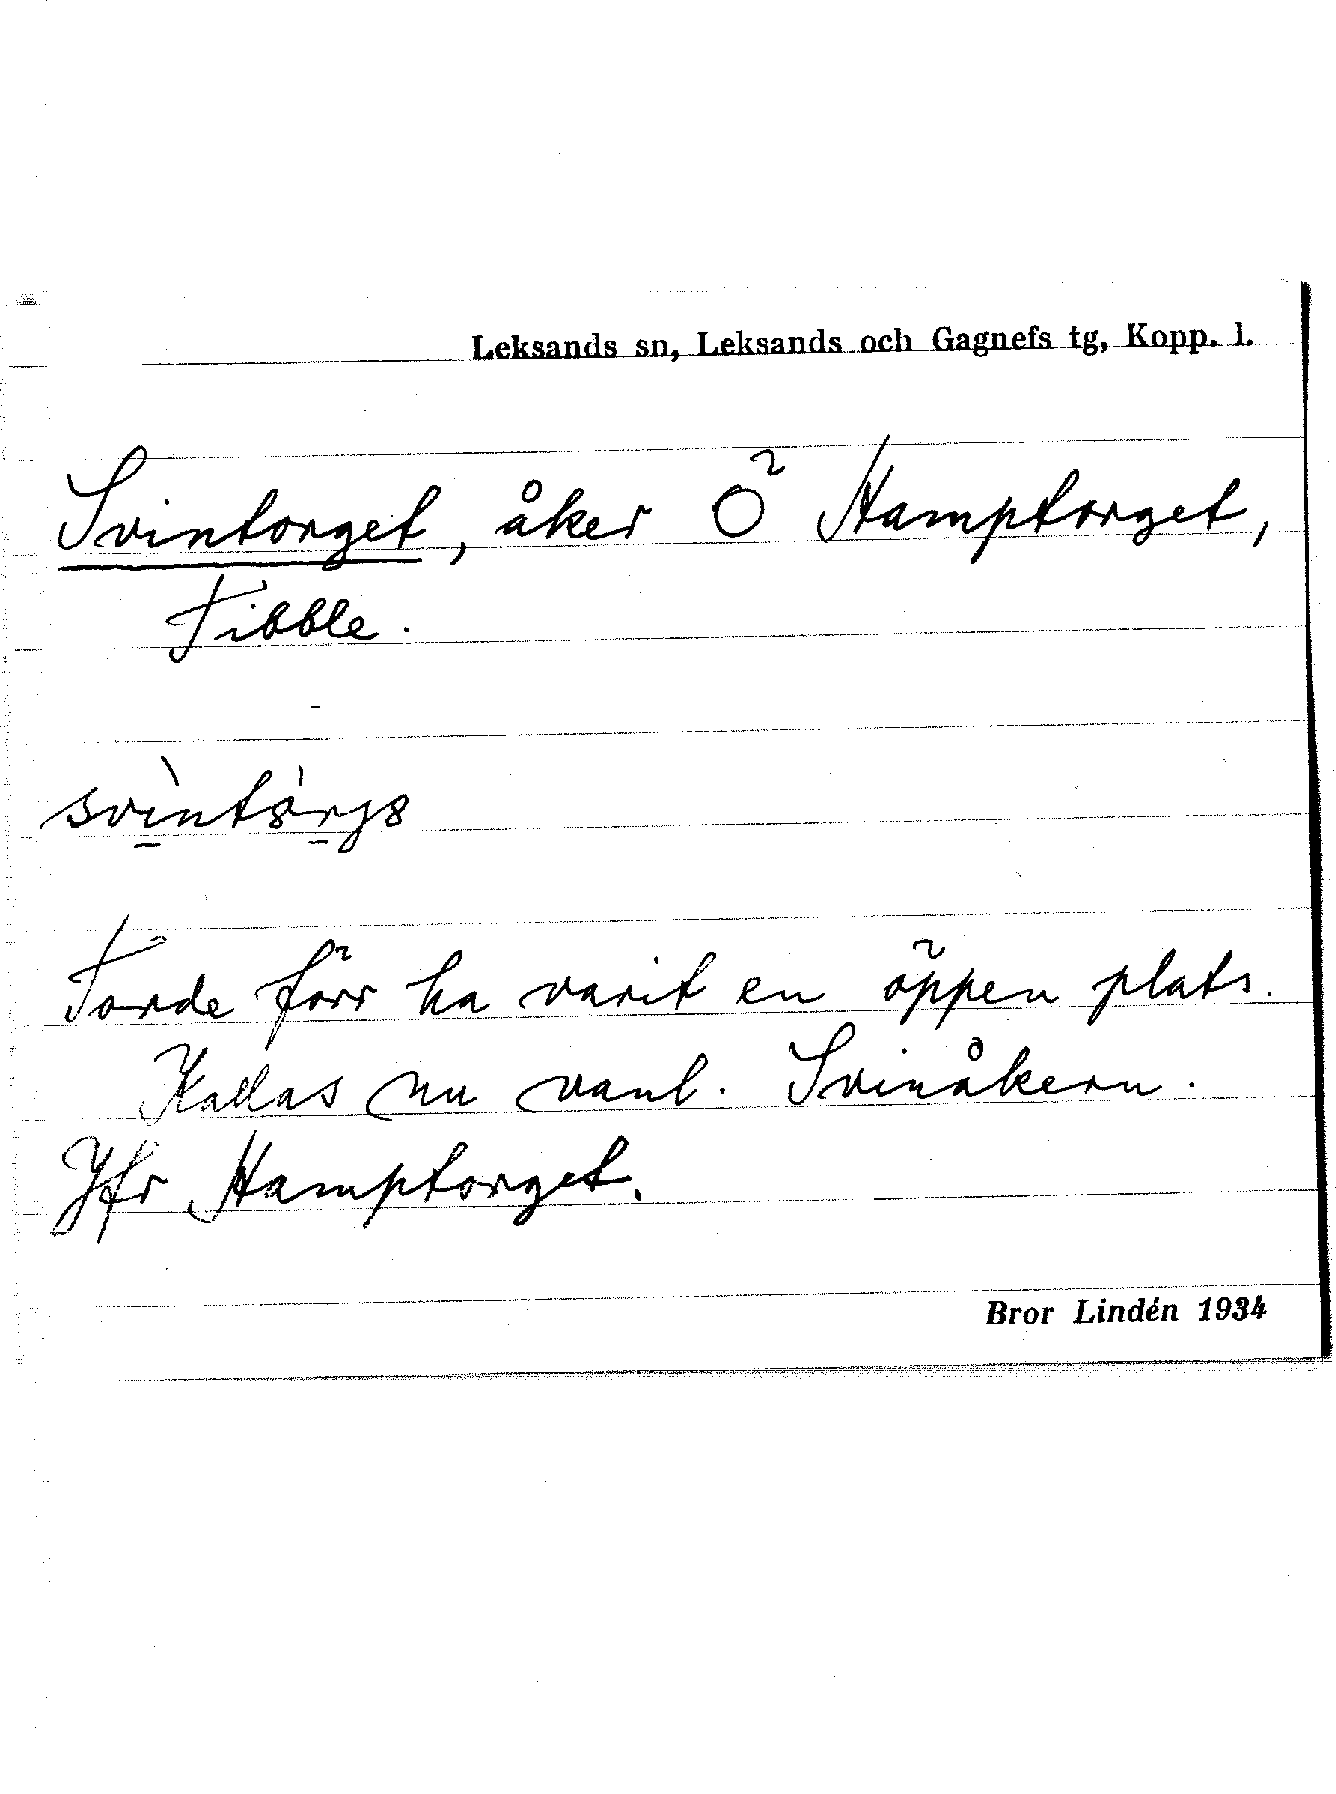 Leksands sn, Leksands och Gagnefs tg, Kopp. l.
Svintorget, åker Ö Hamptorget,
Tibble.
Torde förr ha varit en öppen plats.
Kallas nu vanl. Svinåkern.
Jfr Hamptorget.
Bror Lindén 1934